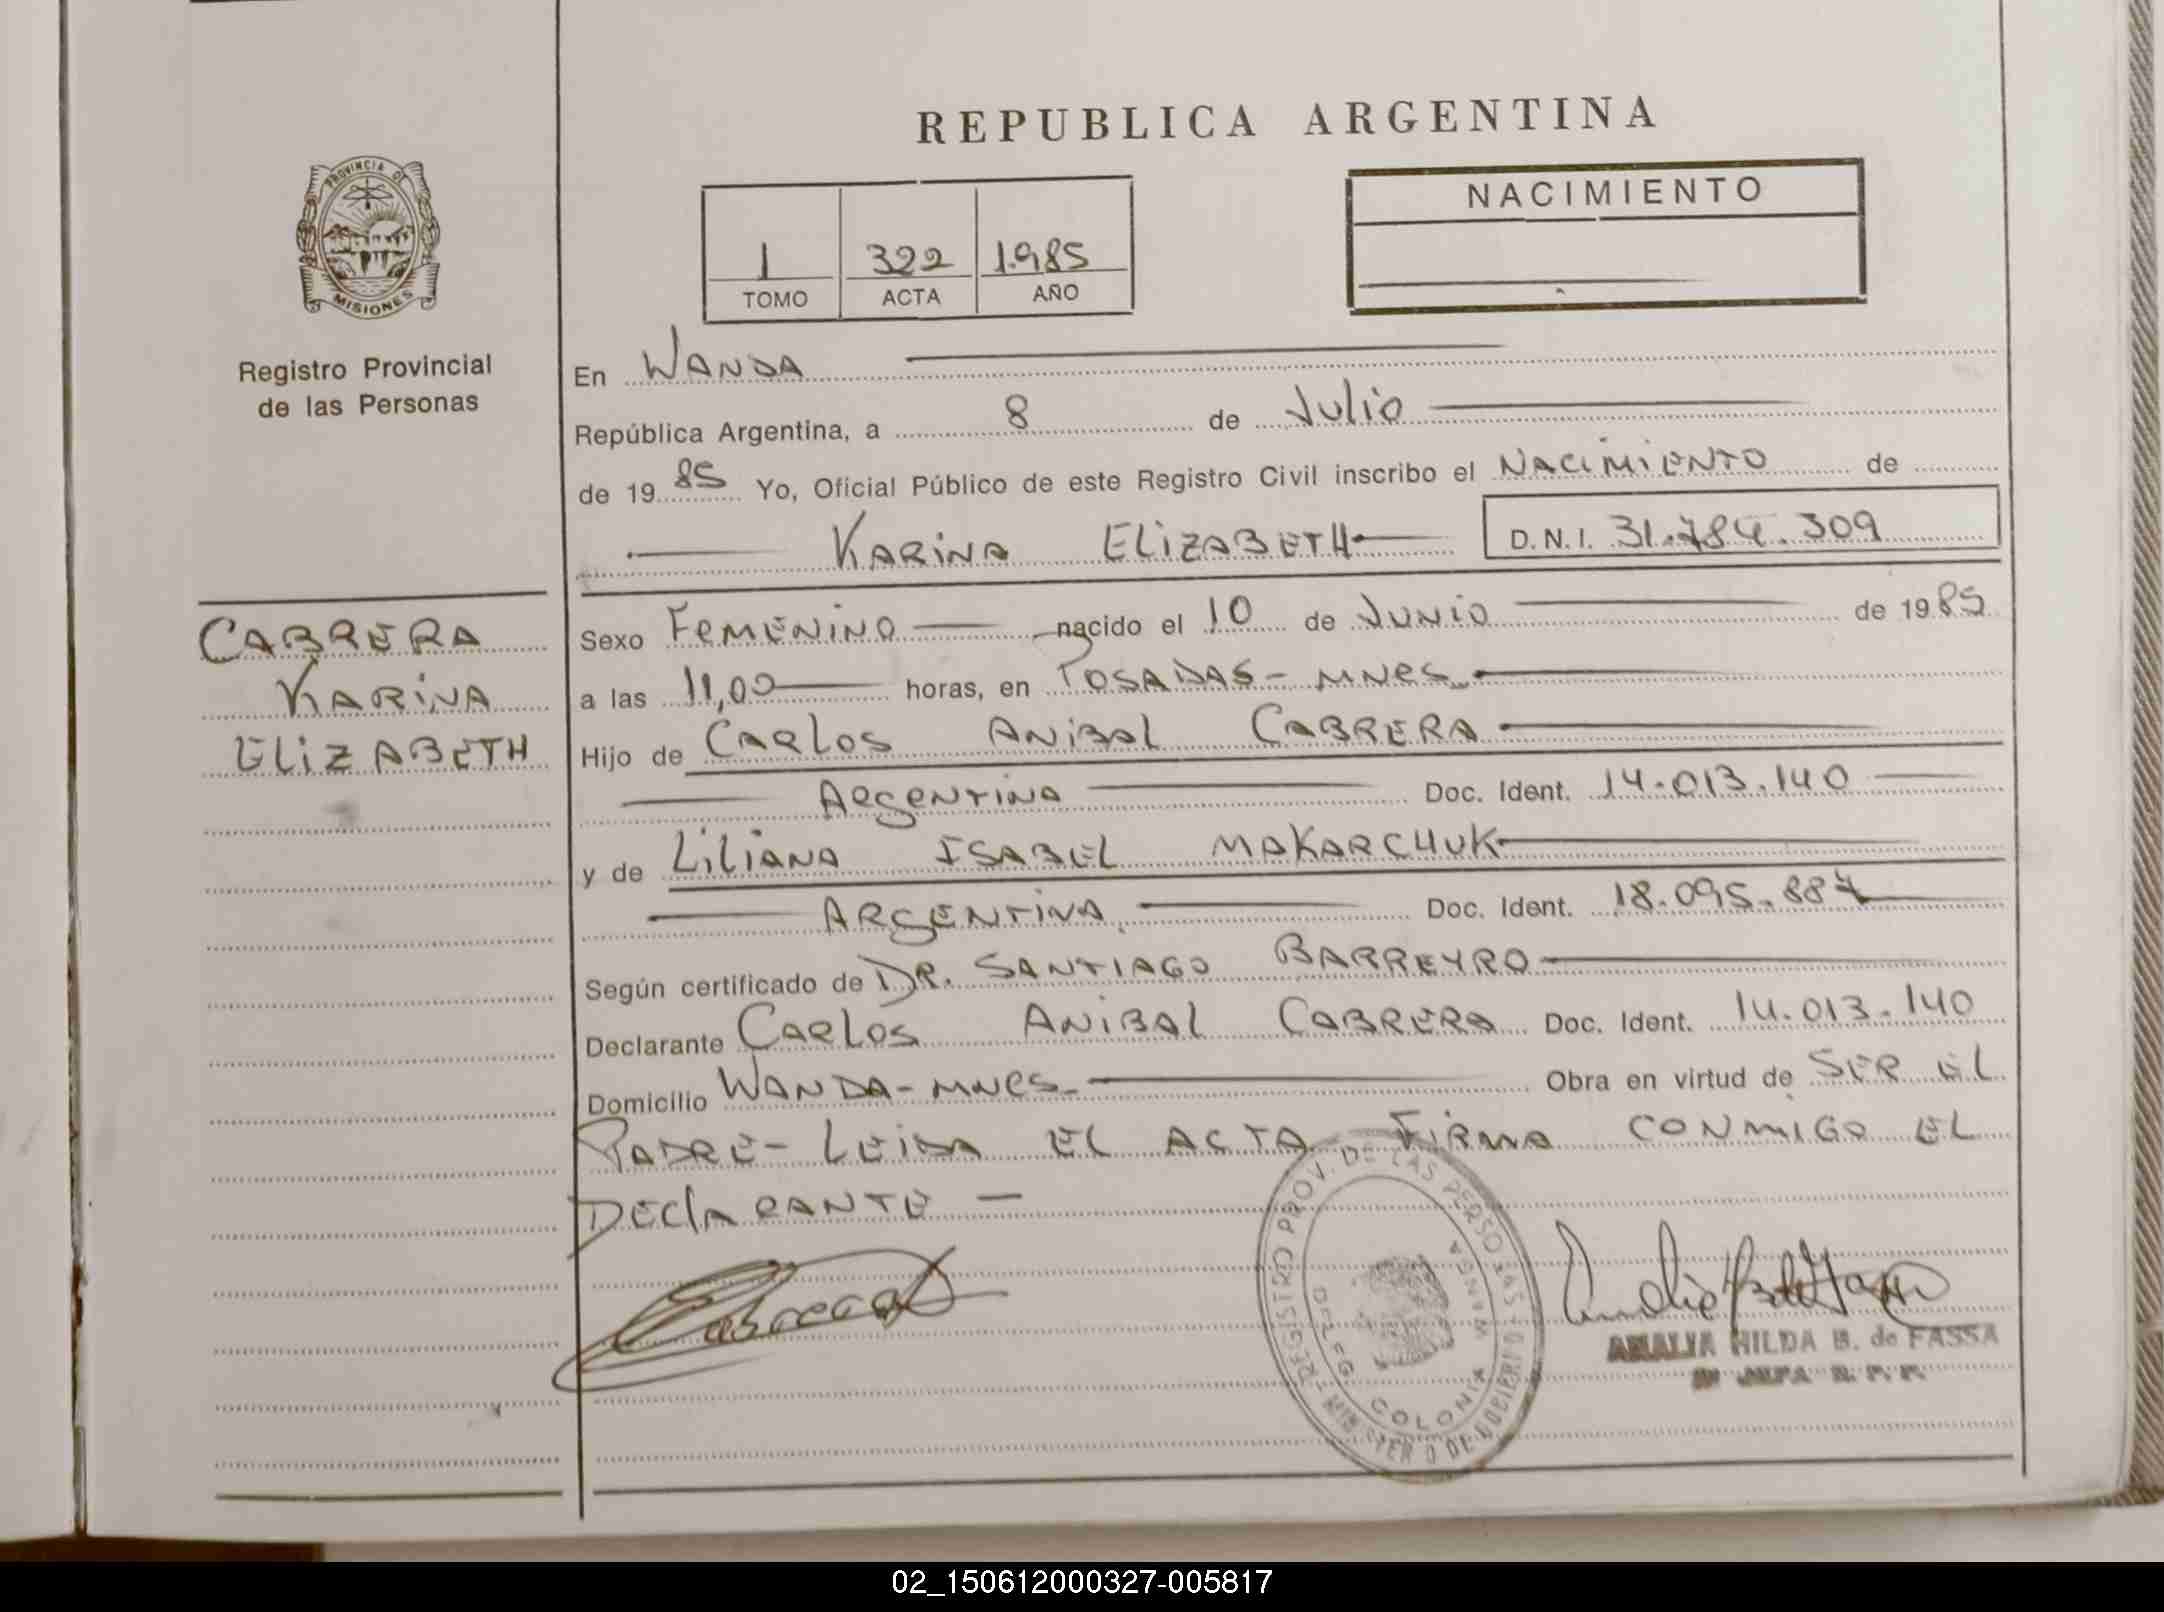 REPUBLICA ARGENTINA
PROVINCIA DE
MISIONES
Registro Provincial
de las Personas
1 322 1.985
TOMO ACTA AÑO
NACIMIENTO
En WANDA
República Argentina, a 8 de Julio
de 1985 Yo, Oficial Público de este Registro Civil inscribo el NACIMIENTO de
KARINA ELIZABETH D.N.I. 31.784.309
CABRERA
KARINA
ELIZABETH
Sexo FEMENINO nacido el 10 de JUNIO de 1985
a las 11,00 horas, en POSADAS - MNES
Hijo de CARLOS ANIBAL CABRERA
ARGENTINA Doc. Ident. 14.013.140
y de LILIANA ISABEL MAKARCHUK
ARGENTINA Doc. Ident. 18.095.887
Según certificado de DR. SANTIAGO BARREYRO
Declarante CARLOS ANIBAL CABRERA Doc. Ident. 14.013.140
Domicilio WANDA - MNES Obra en virtud de SER EL
PADRE - LEIDA EL ACTA FIRMA CONMIGO EL
DECLARANTE -
REGISTRO PROV. DE LAS PERSONAS
MINISTERIO DE GOBIERNO
DELEG. COLONIA WANDA
AMALIA HILDA B. de FASSA
02_150612000327-005817